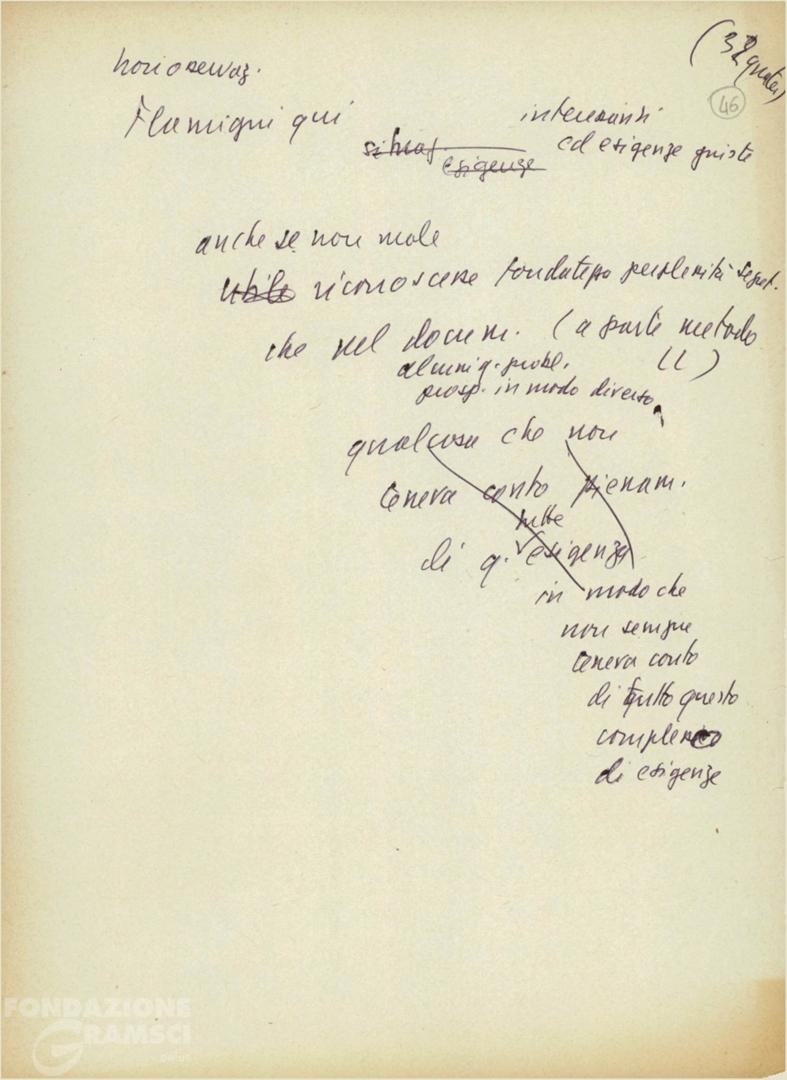 (32 quater)
46
Flamigni qui
interessanti
ed esigenze giuste
esigenze
anche se non vuole
riconoscere fondatezza perplessità segret.
che nel docum. (a parte metodo
LL)
alcuni q. probl.
prosp. in modo diverso
qualcosa che non
teneva conto pienam.
tutte
di q. esigenze
in modo che
non sempre
teneva conto
di tutto questo
complesso
di esigenze
FONDAZIONE
GRAMSCI
onlus